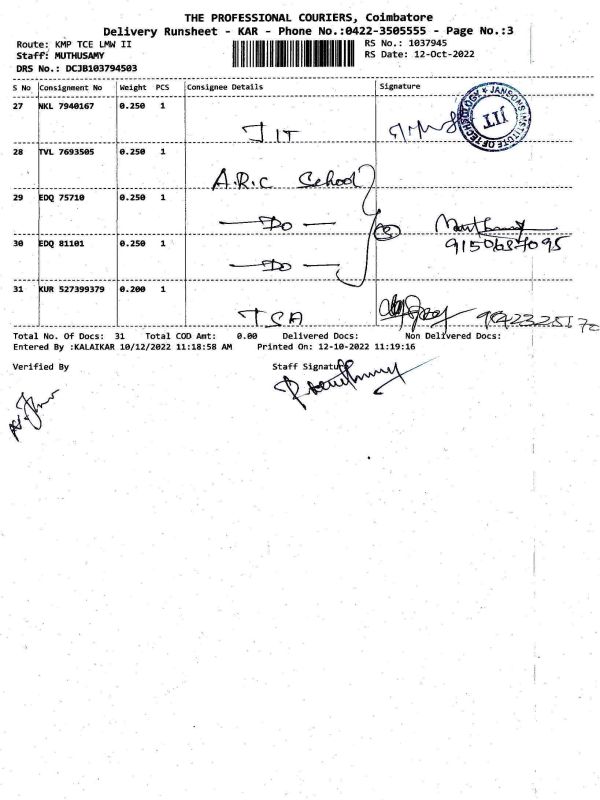 THE PROFESSIONAL COURIERS, Coimbatore
Delivery Runsheet - KAR - Phone No.:0422-3505555 - Page No.:3
Route: KMP TCE LMW II
RS No.: 1037945
Staff: MUTHUSAMY
RS Date: 12-Oct-2022
DRS No.: DCJB103794503
S No Consignment No Weight PCS Consignee Details Signature
27 NKL 7940167 0.250 1 JIT
JANSONS INSTITUTE OF TECHNOLOGY
JIT
28 TVL 7693505 0.250 1 A.R.C School
29 EDQ 75710 0.250 1 Do
3
9150687095
30 EDQ 81101 0.250 1 Do
31 KUR 527399379 0.200 1 TSA
Total No. Of Docs: 31 Total COD Amt: 0.00 Delivered Docs: Non Delivered Docs:
Entered By :KALAIKAR 10/12/2022 11:18:58 AM Printed On: 12-10-2022 11:19:16
Verified By Staff Signature